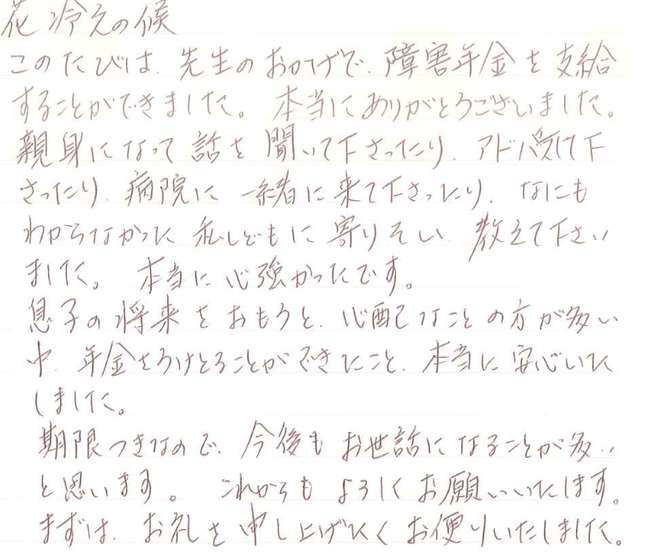 花冷えの候
このたびは、先生のおかげで、障害年金を支給
することができました。本当にありがとうございました。
親身になって話を聞いて下さったり、アドバイス下
さったり、病院に一緒に来て下さったり、なにも
わからなかった私どもに寄りそい、教えて下さい
ました。本当に心強かったです。
息子の将来をおもうと、心配なことの方が多い
中、年金をうけとることができたこと、本当に安心いた
しました。
期限つきなので、今後もお世話になることが多い
と思います。これからもよろしくお願いいたします。
まずは、お礼を申し上げたくお便りいたしました。